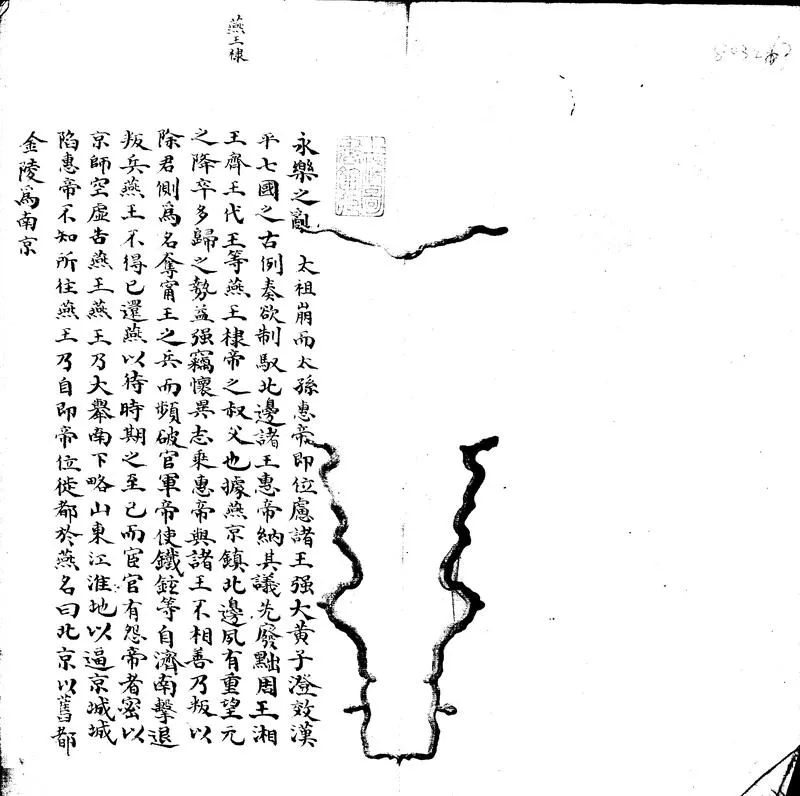 燕王棣
永樂之亂 太祖崩而太孫惠帝即位慮諸王强大黃子澄效漢
平七國之古例奏欲制馭北邊諸王惠帝納其議先廢黜周王湘
王齊王代王等燕王棣帝之叔父也據燕京鎮北邊夙有重望元
之降卒多歸之勢益强竊懷異志乘惠帝與諸王不相善乃叛以
除君側爲名奪甯王之兵而頻破官軍帝使鐵鉉等自濟南擊退
叛兵燕王不得已還燕以待時期之至已而宦官有怨帝者密以
京師空虛告燕王燕王乃大舉南下略山東江淮地以逼京城城
陷惠帝不知所往燕王乃自即帝位徙都於燕名曰北京以舊都
金陵爲南京